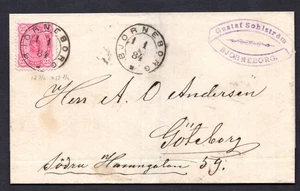 BJÖRNEBORG
1 1
84
BJÖRNEBORG
1 1
84
Gustaf Sohlström
BJÖRNEBORG.
Herr A O Andersen
Göteborg
Södra Hamngatan 59.